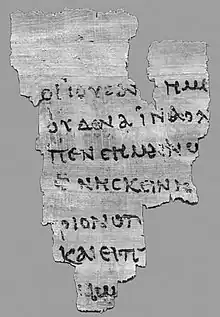 ΟΙ ΙΟΥΔΑΙ ΗΜΕ
ΟΥΔΕΝΑ ΙΝΑ Ο ΛΟ
ΠΕΝ ΣΗΜΑΙΝΩ
ΘΝΗΣΚΕΙΝ Ι
ΡΙΟΝ Ο Π
ΚΑΙ ΕΙΠ